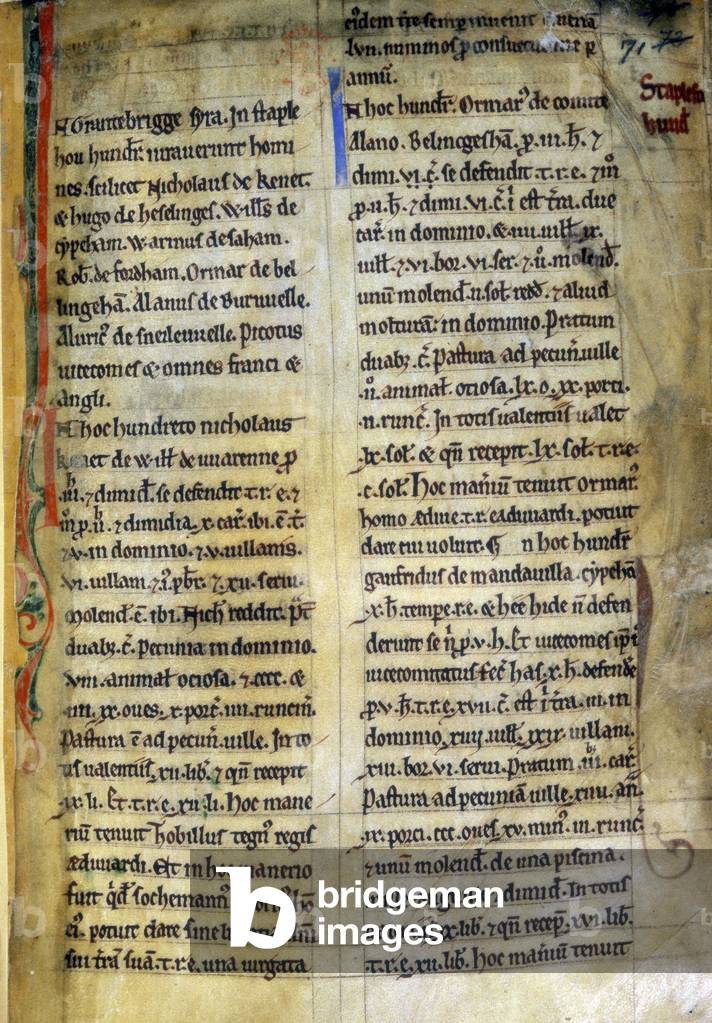 N Grantebrigge syra. In staple
hou hundr̄. iurauerunt homi
nes. scilicet Nicholaus de kenet.
& hugo de heselinges. Willꝰs de
cypeham. Warinus desaham.
Rob̄. de fordham. Ormar de bel
lingehā. Alanus de Buruuelle.
Aluricꝰ de sneileuuelle. Picotus
uicecomes & omnes franci &
angli.
N hoc hundreto nicholaus
kenet de Will̄ de uuarenne ꝑ
.iii. h̄. ⁊ dimid̄. se defendit .t.r.e. ⁊
m̄ ꝑ .ii. h̄. ⁊ dimidia. x. car̄. ibi. ē. t̄.
⁊ v. in dominio. ⁊ v. uillanis.
vi. uillani. ⁊ .i. pb̄r. ⁊ xii. serui.
Molend̄. ē. ibi. Nich̄ reddit. p̄t̄
duabꝫ. c̄. Pecunia in dominio.
viii. animal̄ ociosa. ⁊ cccc. &
.iiii. xx. oues. x. porc̄. iiii. runcin̄.
Pastura ē ad pecun̄. uille. In to
tis ualentiis. xii. lib̄. ⁊ qn̄ recepit
.ix. li. Et. t.r.e. xii. li. Hoc mane
riū tenuit Thobillus tegnꝰ regis
ædwardi. Et in hoc manerio
fuit qd̄ sochemannꝰ
eiꝰ. potuit dare sine
sui tr̄ā suā. t.r.e. una uirgata
eidem tr̄e semp inuenit
lvii. nummos ꝑ consuetudine ꝑ
annū.
N hoc hundr̄. Ormarꝰ de comite
Alano. Belincgeshā. ꝑ .iii. h̄. ⁊
dimi. vi. c̄. se defendit. t.r.e. ⁊ m̄
ꝑ .ii. h̄. ⁊ dimi. vi. c̄. ī est t̄ra. due
car̄. in dominio. & iiii. uill̄. ix.
uill̄. ⁊ vi. bor. vi. ser. ⁊ ii. molend̄.
unū molend̄. ii. sol̄. redd̄. ⁊ aliud
molturā: in dominio. Pratum
duabꝫ. c̄. Pastura ad pecun̄. uille
.ii. animal̄. ociosa. lx. o. xx. porci.
.ii. runc̄. In totis ualentiis ualet
.lx. sol̄. & qn̄ recepit. lx. sol̄. t.r.e.
.c. sol̄. Hoc man̄iū tenuit ormarꝰ
homo ædiue. t.r. eaduuardi. potuit
dare cui uoluit. N hoc hundr̄
gaufridus de mandauilla. cypehā
.x. h̄. tempe. r.e. & hee hide n̄ defen
derunt se n̄. ꝑ .v. h. Et uicecomes ipꝰi
uicecomitatus fec̄ has. x. h̄. defende
ꝑ v. h̄. t.r.e. xvii. c̄. est ī t̄ra. iii. in
dominio. xiiij. uill̄. xix. uillani.
xiii. bor. vi. serui. Pratum .iii. car̄.
Pastura ad pecuniā uille. xiiii. an̄.
.ix. porci. ccc. oues. xv. minꝰ. iii. runc̄.
⁊ unū molend̄. de una piscina.
dimid̄. In totis
xx. lib̄. ⁊ qn̄ recep̄. xvi. lib̄.
t.r.e. xii. lib̄. Hoc man̄iū tenuit
71 72
Staplehou
hund̄
bridgeman
images